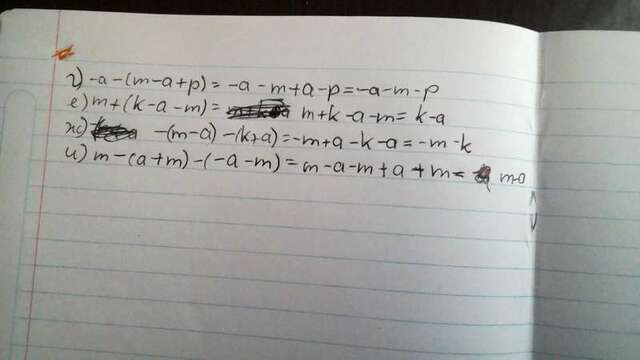 г) -a-(m-a+p)=-a-m+a-p=-a-m-p
е) m+(k-a-m)= m+k-a-m=k-a
ж) -(m-a)-(k+a)=-m+a-k-a=-m-k
и) m-(a+m)-(-a-m)=m-a-m+a+m=